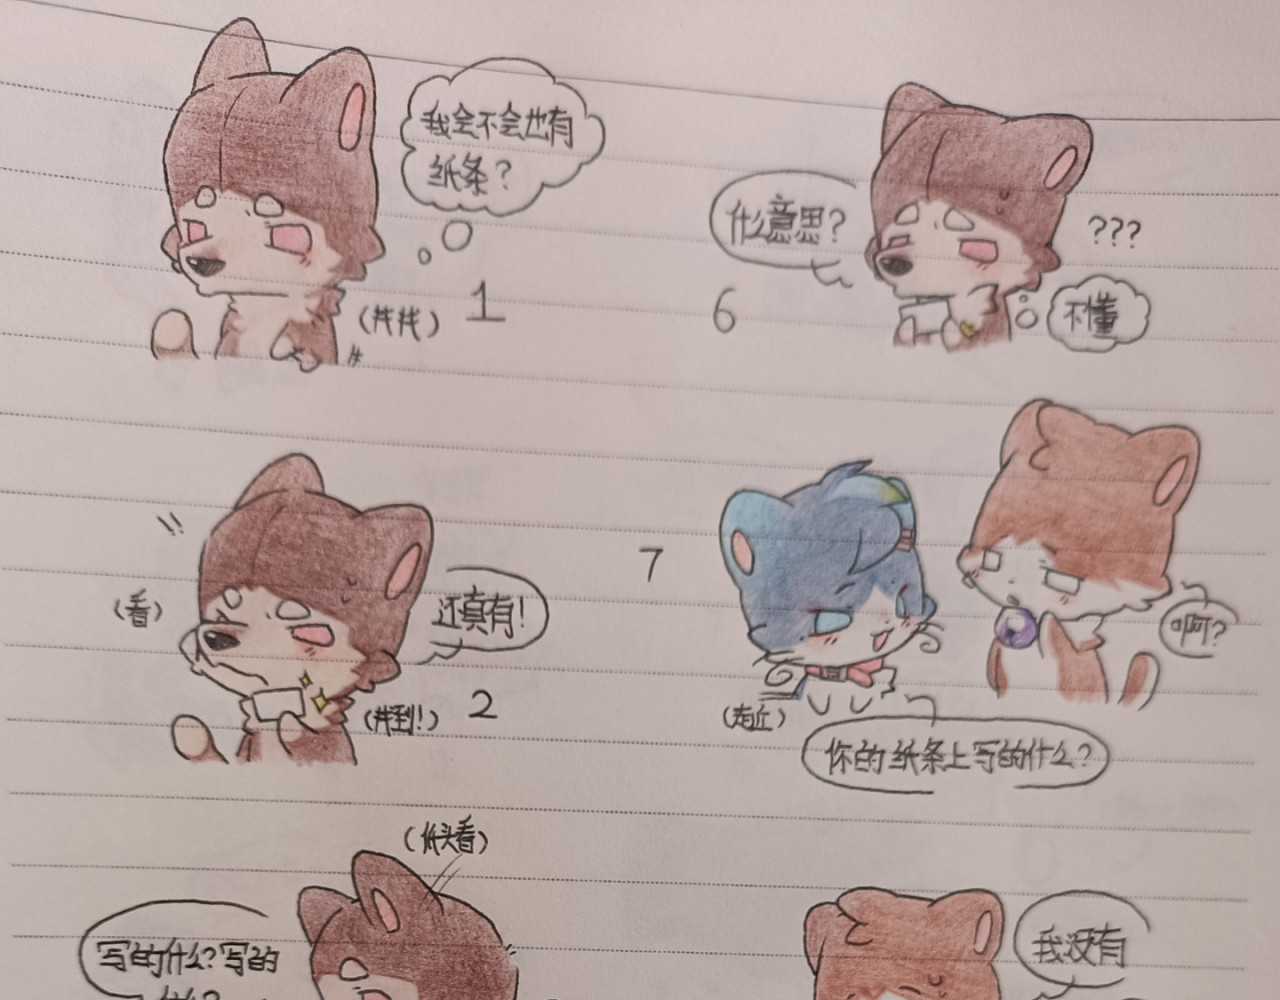 我会不会也有
纸条？
（找找）
1
（看）
还真有！
（找到！）
2
（低头看）
写的什么？写的
什么？
什么意思？
???
不懂
6
7
啊？
（走近）
你的纸条上写的什么？
我没有